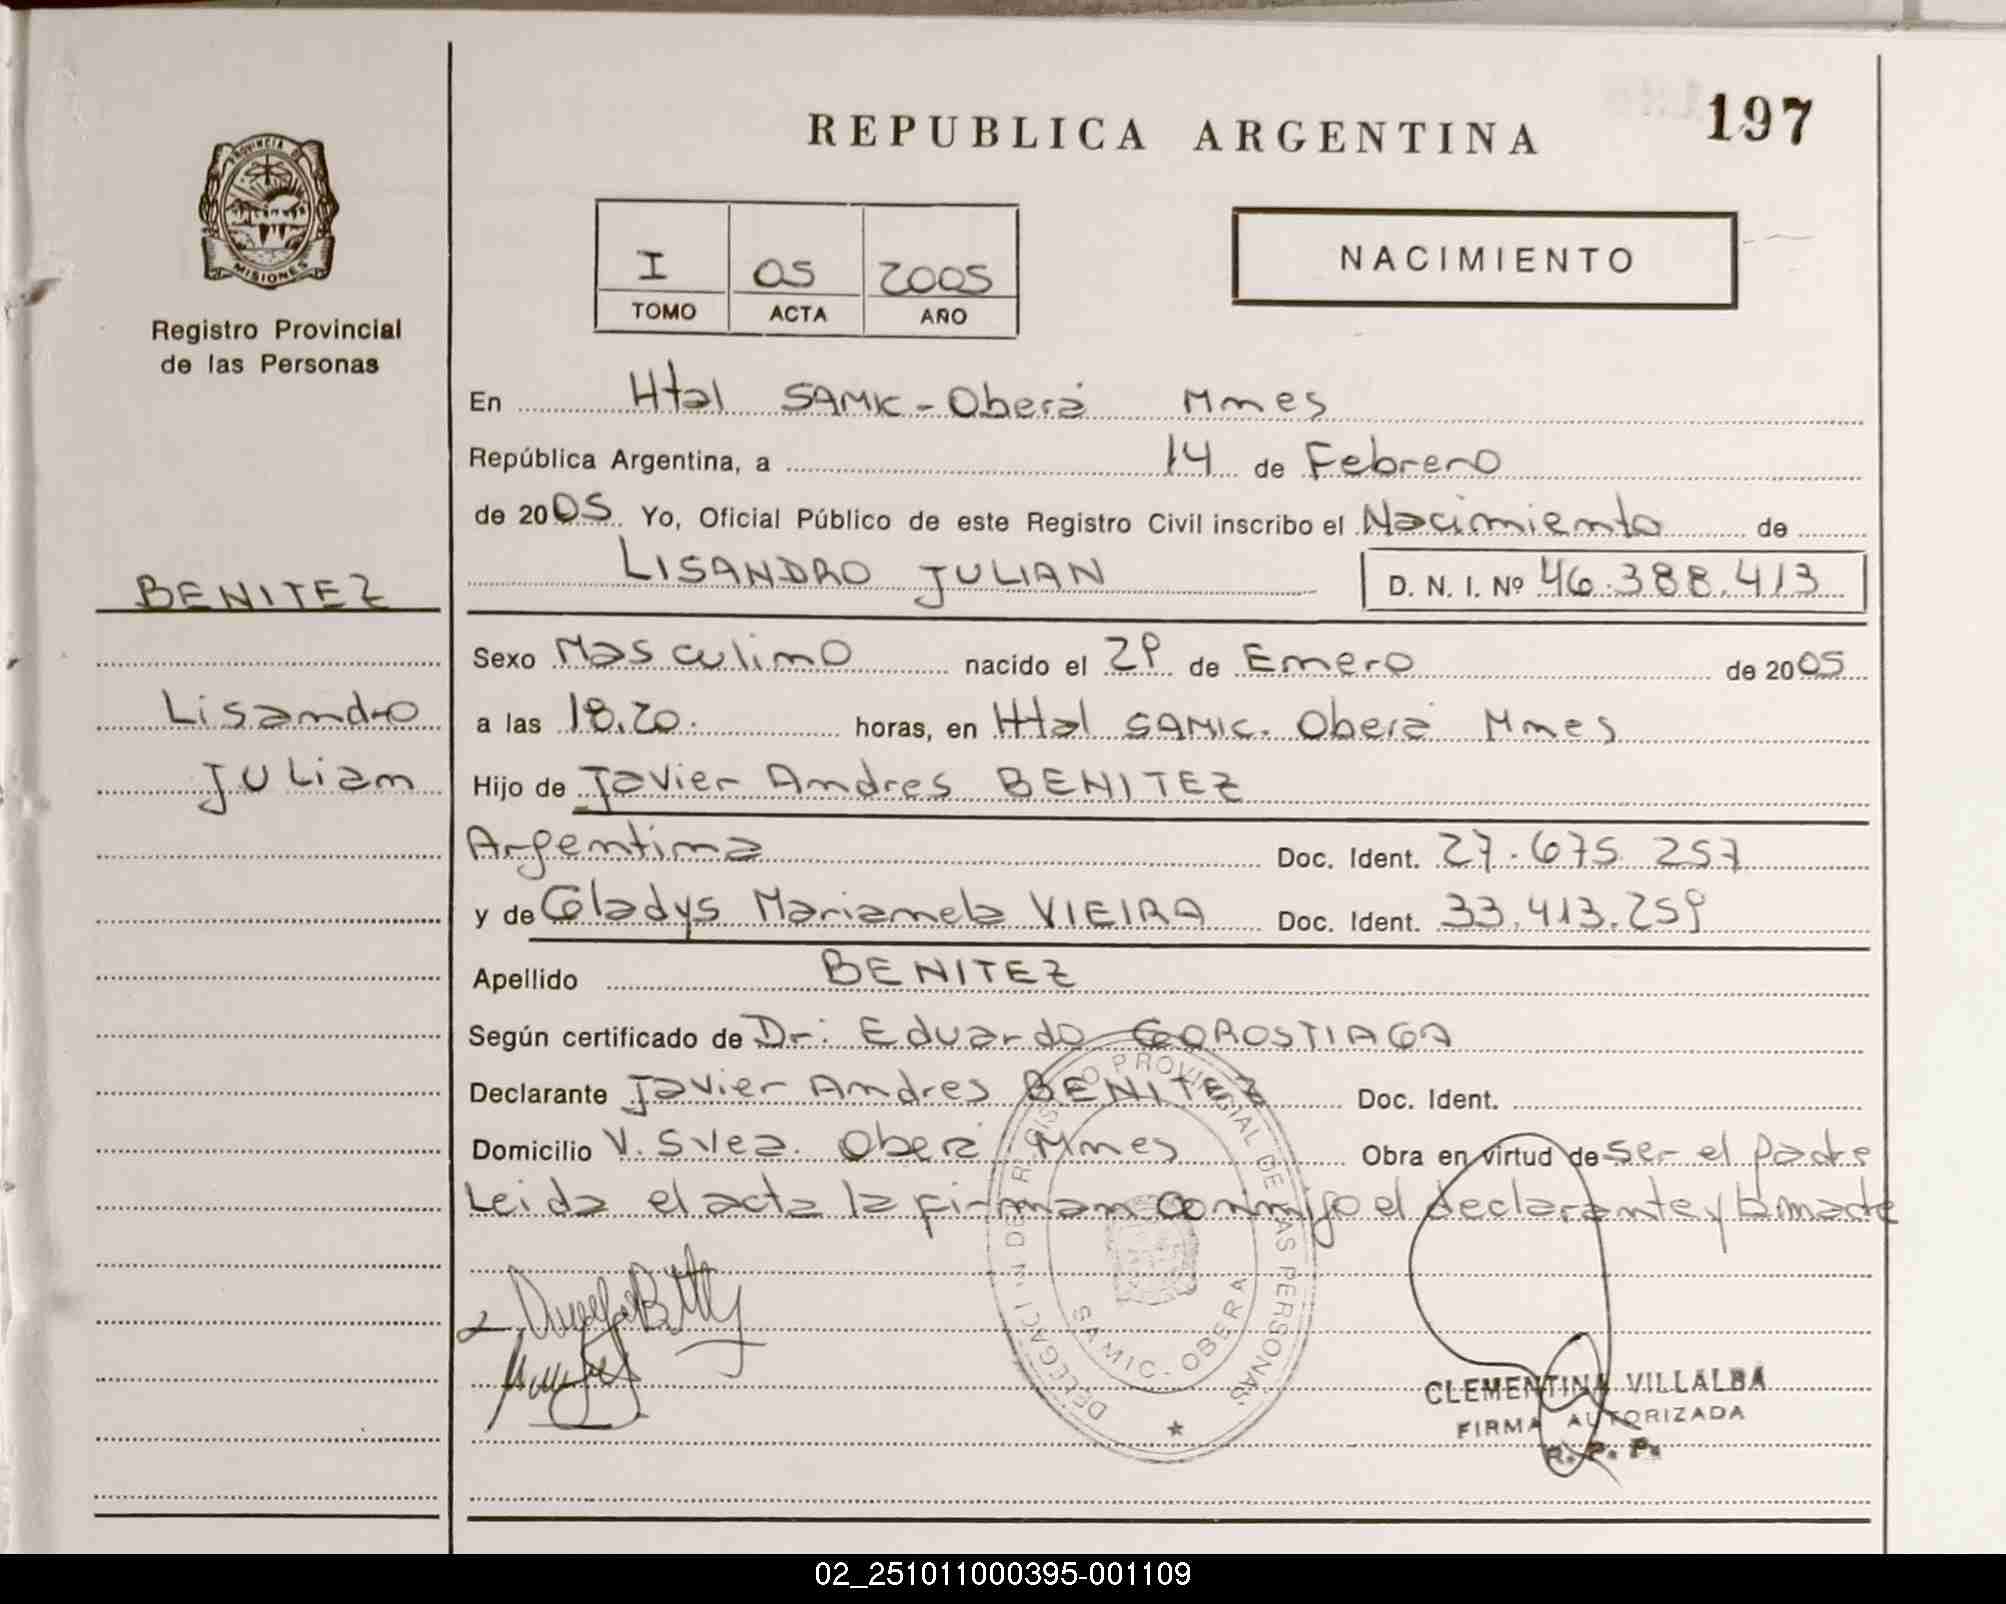 REPUBLICA ARGENTINA
197
PROVINCIA DE
MISIONES
Registro Provincial
de las Personas
I 05 2005
TOMO ACTA AÑO
NACIMIENTO
En Htal SAMIC - Oberá Mnes
República Argentina, a 14 de Febrero
de 2005 Yo, Oficial Público de este Registro Civil inscribo el Nacimiento de
LISANDRO JULIAN D. N. I. Nº 46.388.413
BENITEZ
Lisandro
Julian
Sexo Masculino nacido el 29 de Enero de 2005
a las 18.20. horas, en Htal SAMIC. Oberá Mnes
Hijo de Javier Andres BENITEZ
Argentina Doc. Ident. 27.675.257
y de Gladys Marianela VIEIRA Doc. Ident. 33.413.259
Apellido BENITEZ
Según certificado de Dr: Eduardo GOROSTIAGA
Declarante Javier Andres BENITEZ Doc. Ident.
Domicilio V. Svea. Oberá Mnes Obra en virtud de ser el padre
Leida el acta la firman conmigo el declarante y la madre
DELEGACI N DE R GISTRO PROVINCIAL DE LAS PERSONAS
SAMIC - OBERA
CLEMENTINA VILLALBA
FIRMA AUTORIZADA
R. P. P.
02_251011000395-001109